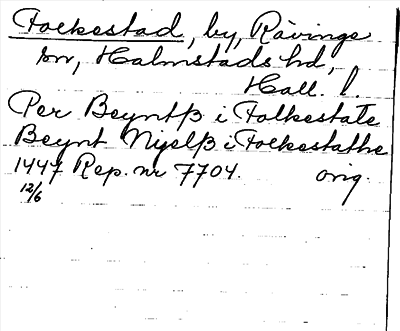 Folkestad, by, Rävinge
sn, Halmstads hd,
Hall. l.
Per Beyntß i Folkestate
Beynt Nyelß i Folkestathe
1447 Rep. nr 7704. orig.
12/6